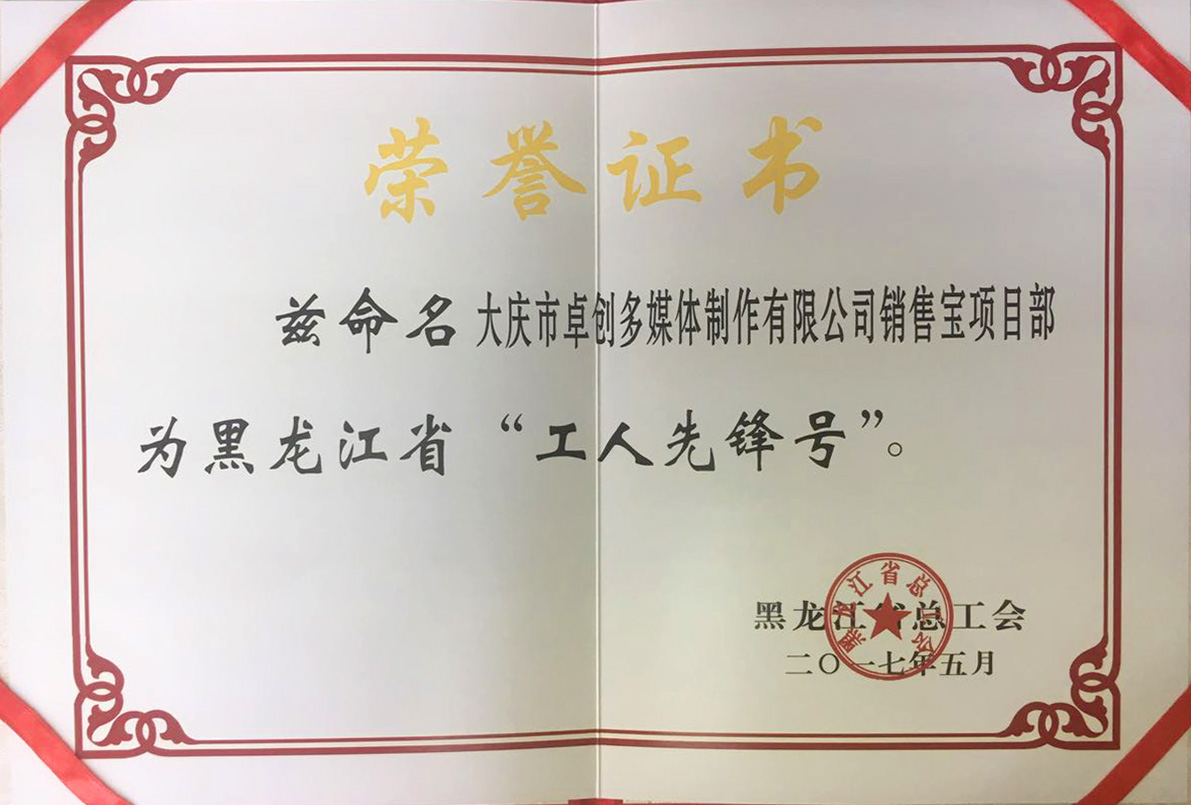 荣誉证书
兹命名大庆市卓创多媒体制作有限公司销售宝项目部
为黑龙江省“工人先锋号”。
黑龙江省总工会
二〇一七年五月
黑龙江省总工会